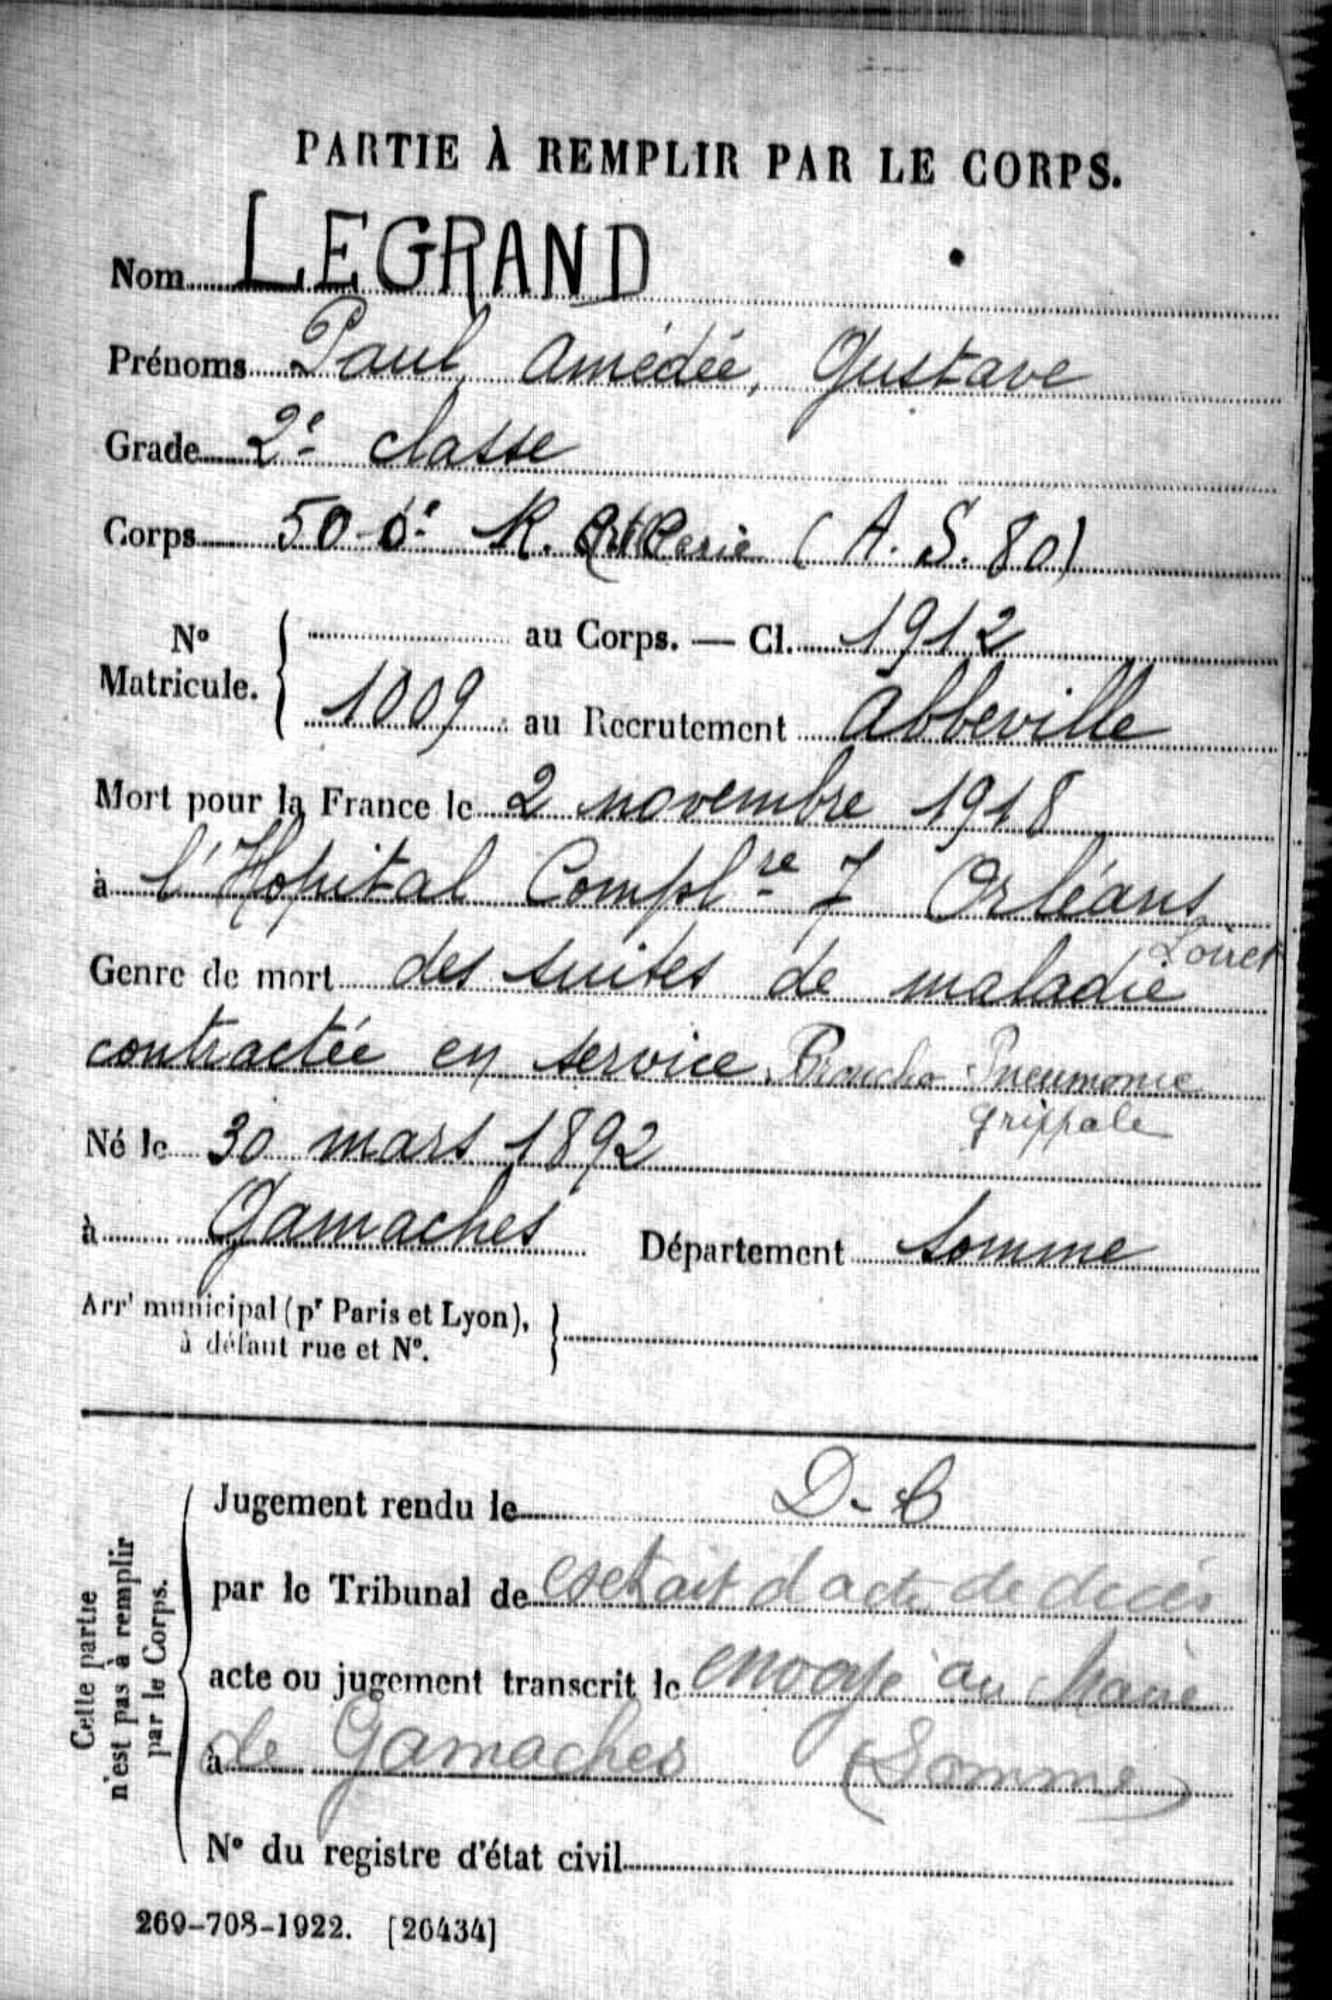 PARTIE À REMPLIR PAR LE CORPS.
Nom LEGRAND
Prénoms Paul, Amédée, Gustave
Grade 2e classe
Corps 500e R. Artillerie (A. S. 80)
No Matricule. { au Corps. — Cl. 1912
1009 au Recrutement Abbeville
Mort pour la France le 2 novembre 1918
à l'Hopital Complre 7 Orléans
Loiret
Genre de mort des suites de maladie
contractée en service Broncho Pneumonie
grippale
Né le 30 mars 1892
à Gamaches Département Somme
Arrt municipal (pr Paris et Lyon),
à défaut rue et No.
Cette partie
n'est pas à remplir
par le Corps.
Jugement rendu le D-C
par le Tribunal de extrait d acte de décès
acte ou jugement transcrit le envoyé au Maire
à de Gamaches (Somme)
No du registre d'état civil
269-708-1922. [26434]